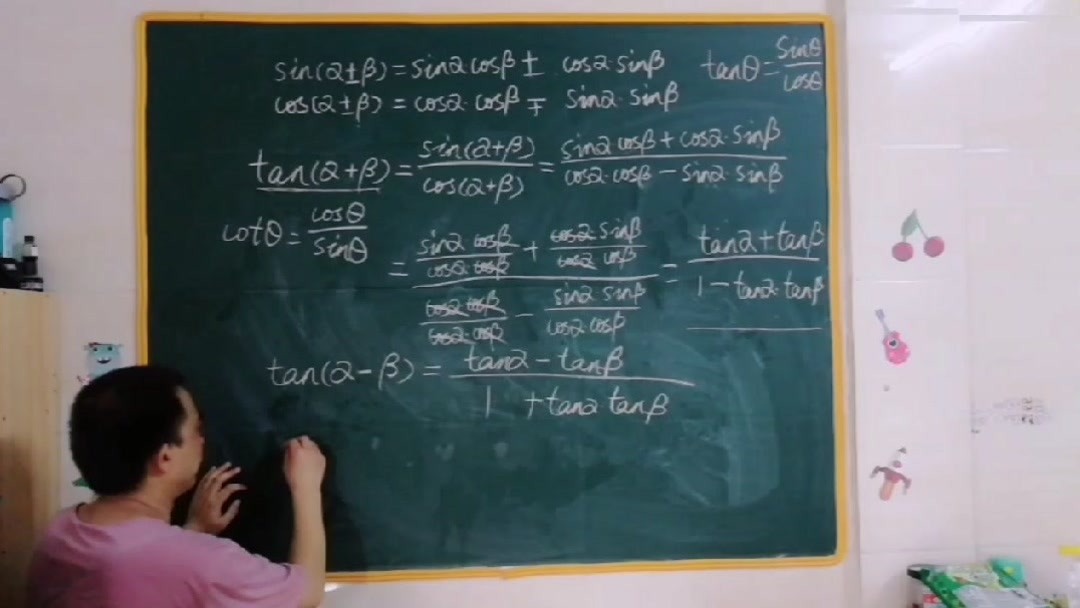 sin(α±β)=sinα cosβ ± cosα·sinβ  tanθ=sinθ/cosθ
cos(α±β) = cosα·cosβ ∓ sinα·sinβ
tan(α+β)=sin(α+β)/cos(α+β)=(sinα cosβ + cosα·sinβ)/(cosα·cosβ − sinα·sinβ)
cotθ=cosθ/sinθ
=((sinα cosβ)/(cosα cosβ) + (cosα sinβ)/(cosα cosβ))/((cosα cosβ)/(cosα cosβ) − (sinα sinβ)/(cosα cosβ)) = (tanα+tanβ)/(1−tanα·tanβ)
tan(α−β)=(tanα−tanβ)/(1+tanα tanβ)